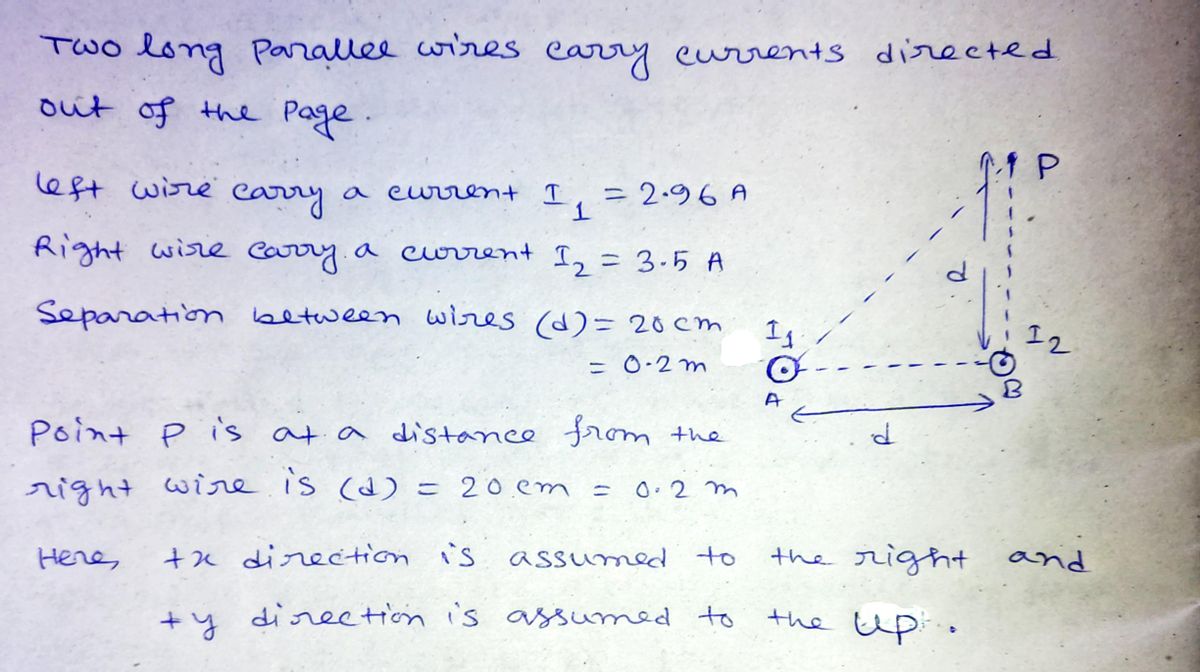 Two long parallel wires carry currents directed
out of the page.
P
left wire carry a current I₁ = 2.96 A
Right wire carry a current I₂ = 3.5 A
d
Separation between wires (d) = 20 cm
I₁
I₂
= 0.2 m
A
B
d
Point P is at a distance from the
right wire is (d) = 20 cm = 0.2 m
Here, +x direction is assumed to the right and
+y direction is assumed to the up.